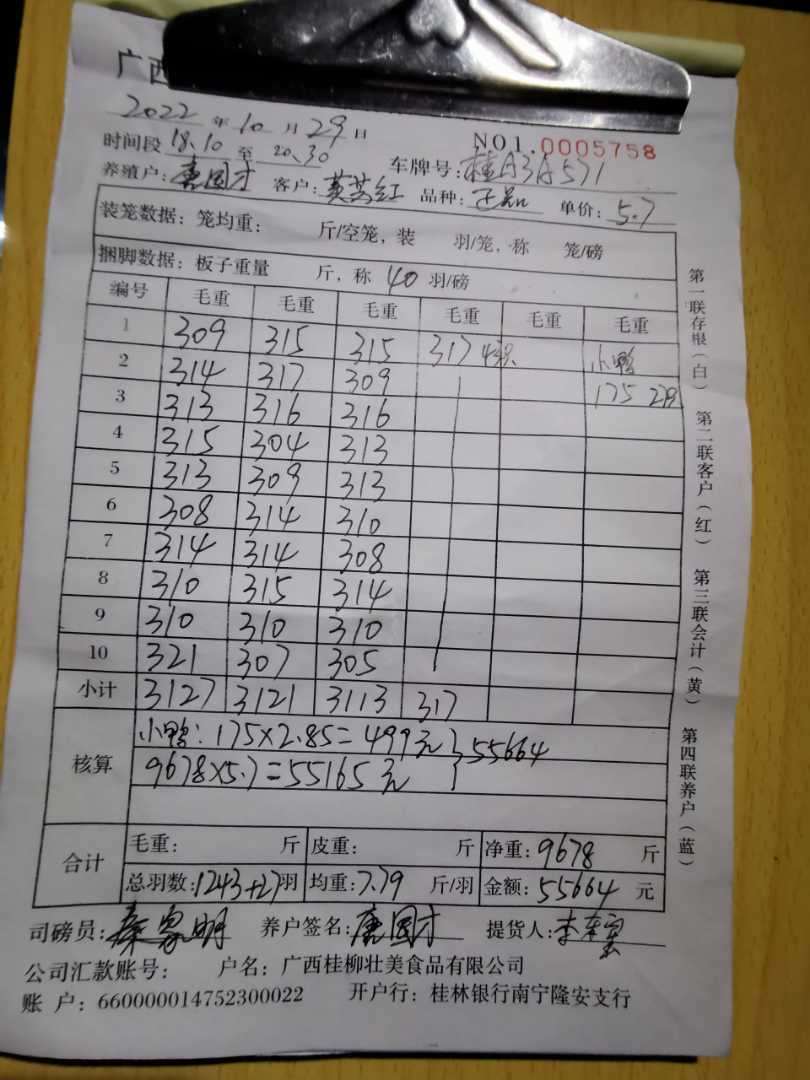 广西
2022年10月29日
NO1.0005758
时间段18.10至20.30 车牌号:桂A3A571
养殖户:唐国才 客户:黄其红 品种:正品 单价:5.7
装笼数据:笼均重: 斤/空笼,装 羽/笼,称 笼/磅
捆脚数据:板子重量 斤,称40羽/磅
编号 毛重 毛重 毛重 毛重 毛重 毛重
1 309 315 315 317 小鸭
2 314 317 309 175
3 313 316 316
4 315 304 313
5 313 309 313
6 308 314 310
7 314 314 308
8 310 315 314
9 310 310 310
10 321 307 305
小计 3127 3121 3113 317
核算
小鸭:175×2.85=499元
9678×5.7=55165元
}55664
合计
毛重: 斤 皮重: 斤 净重:9678斤
总羽数:1243+27羽 均重:7.79斤/羽 金额:55664元
司磅员:秦家明 养户签名:唐国才 提货人:李
公司汇款账号: 户名:广西桂柳壮美食品有限公司
账 户:660000014752300022 开户行:桂林银行南宁隆安支行
第一联存根(白)
第二联客户(红)
第三联会计(黄)
第四联养户(蓝)